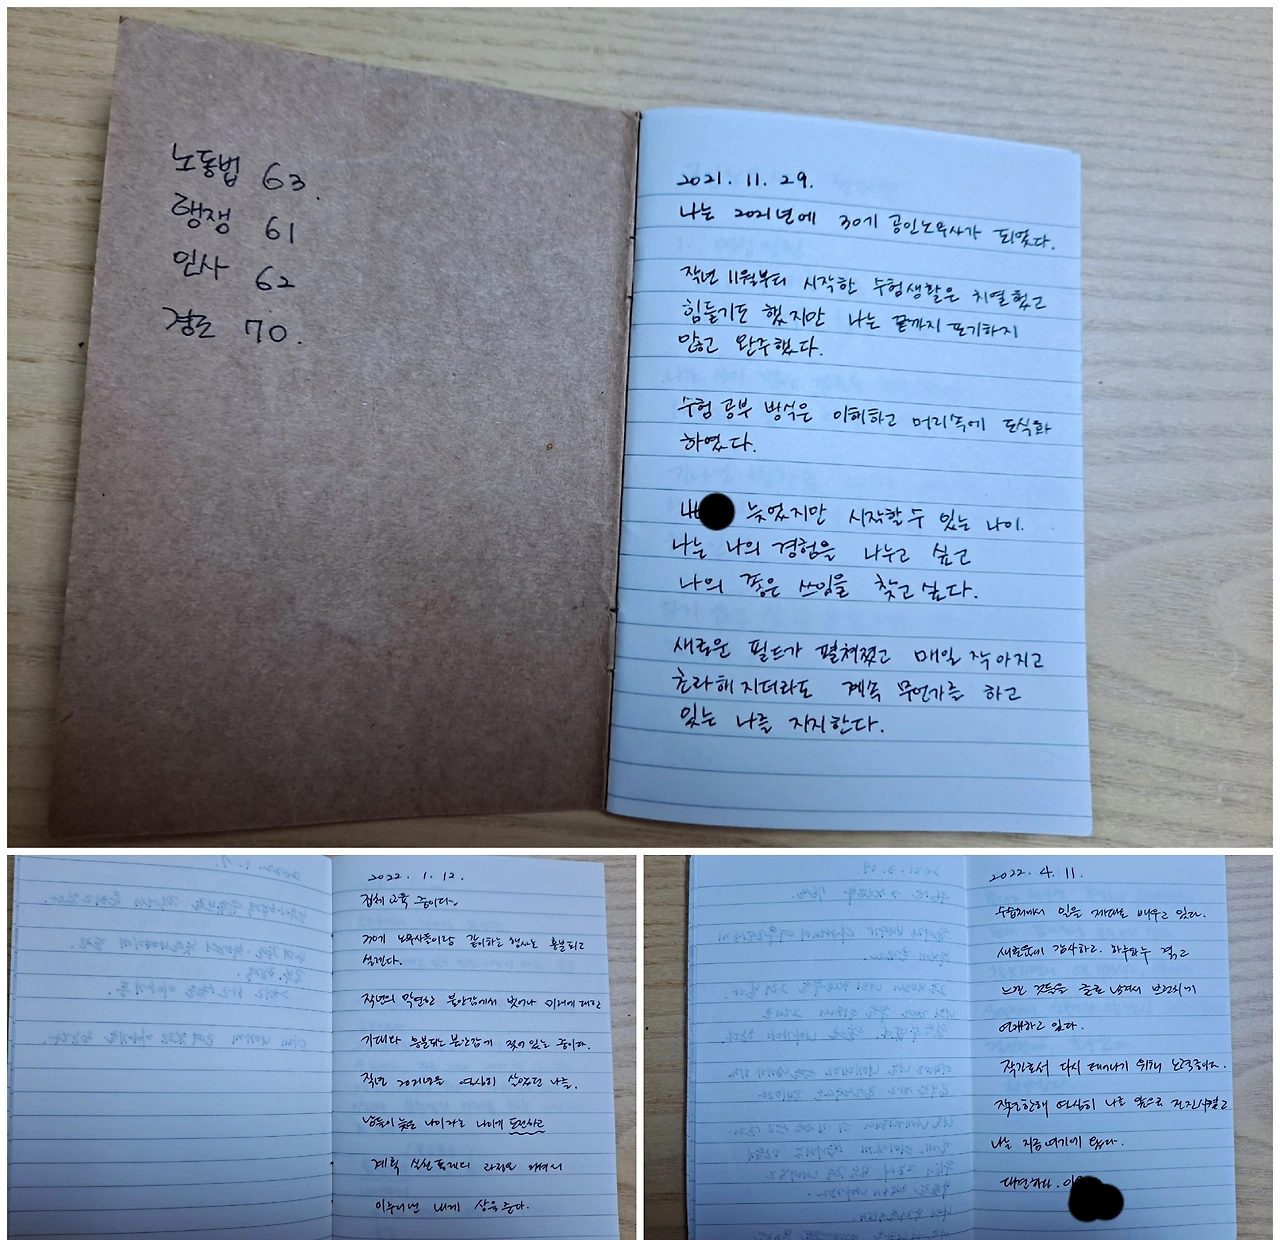 노동법 63.
행쟁 61
인사 62
경조 70.
2021. 11. 29.
나는 2021년에 30기 공인노무사가 되었다.
작년 11월부터 시작한 수험생활은 치열했고
힘들기도 했지만 나는 끝까지 포기하지
않고 완주했다.
수험 공부 방식은 이해하고 머리속에 도식화
하였다.
늦었지만 시작할 수 있는 나이.
나는 나의 경험을 나누고 싶고
나의 좋은 쓰임을 찾고 싶다.
새로운 필드가 펼쳐졌고 매일 작아지고
초라해지더라도 계속 무언가를 하고
있는 나를 지지한다.
2022. 1. 12.
집체교육 중이다.
30기 노무사들이랑 같이하는 행사는 흥분되고
설렌다.
작년의 막연한 불안감에서 벗어나 미래에 대한
기대와 흥분되는 불안감에 젖어있는 중이다.
작년 2021년을 열심히 살았던 나를.
남들이 늦은 나이라는 나이에 도전하고
계획 실천
이루어낸 내게 상을 준다.
2022. 4. 11.
수습처에서 일을 제대로 배우고 있다.
새로움에 감사하고. 하루하루 겪고
느낀 것들을 글로 남겨서 브런치에
연재하고 있다.
작가로서 다시 태어나기 위해 노력중이다.
작년한해 열심히 나를 앞으로 전진시켰고
나는 지금 여기에 있다.
대견하다.